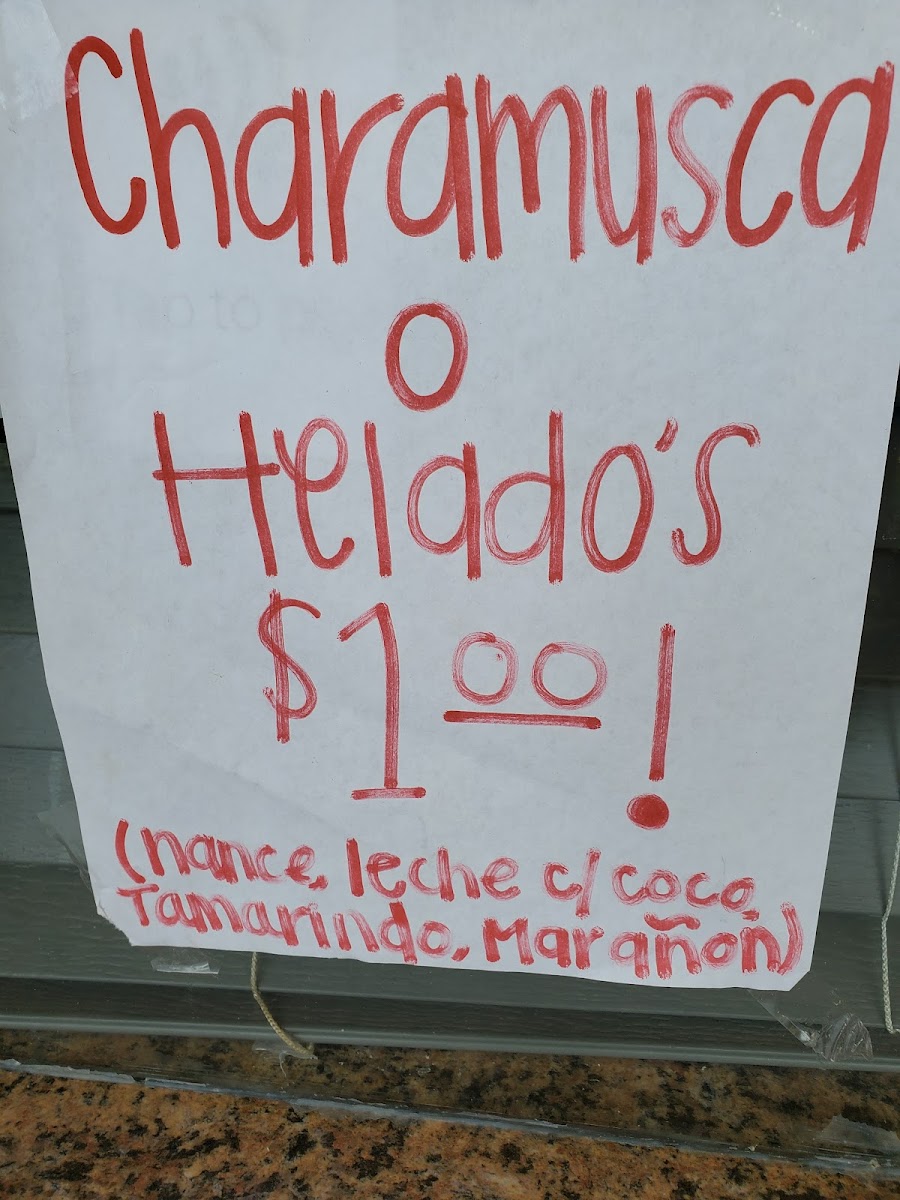 Charamusca
o
Helado's
$1.00!
(nance, leche c/ coco,
Tamarindo, Marañon)